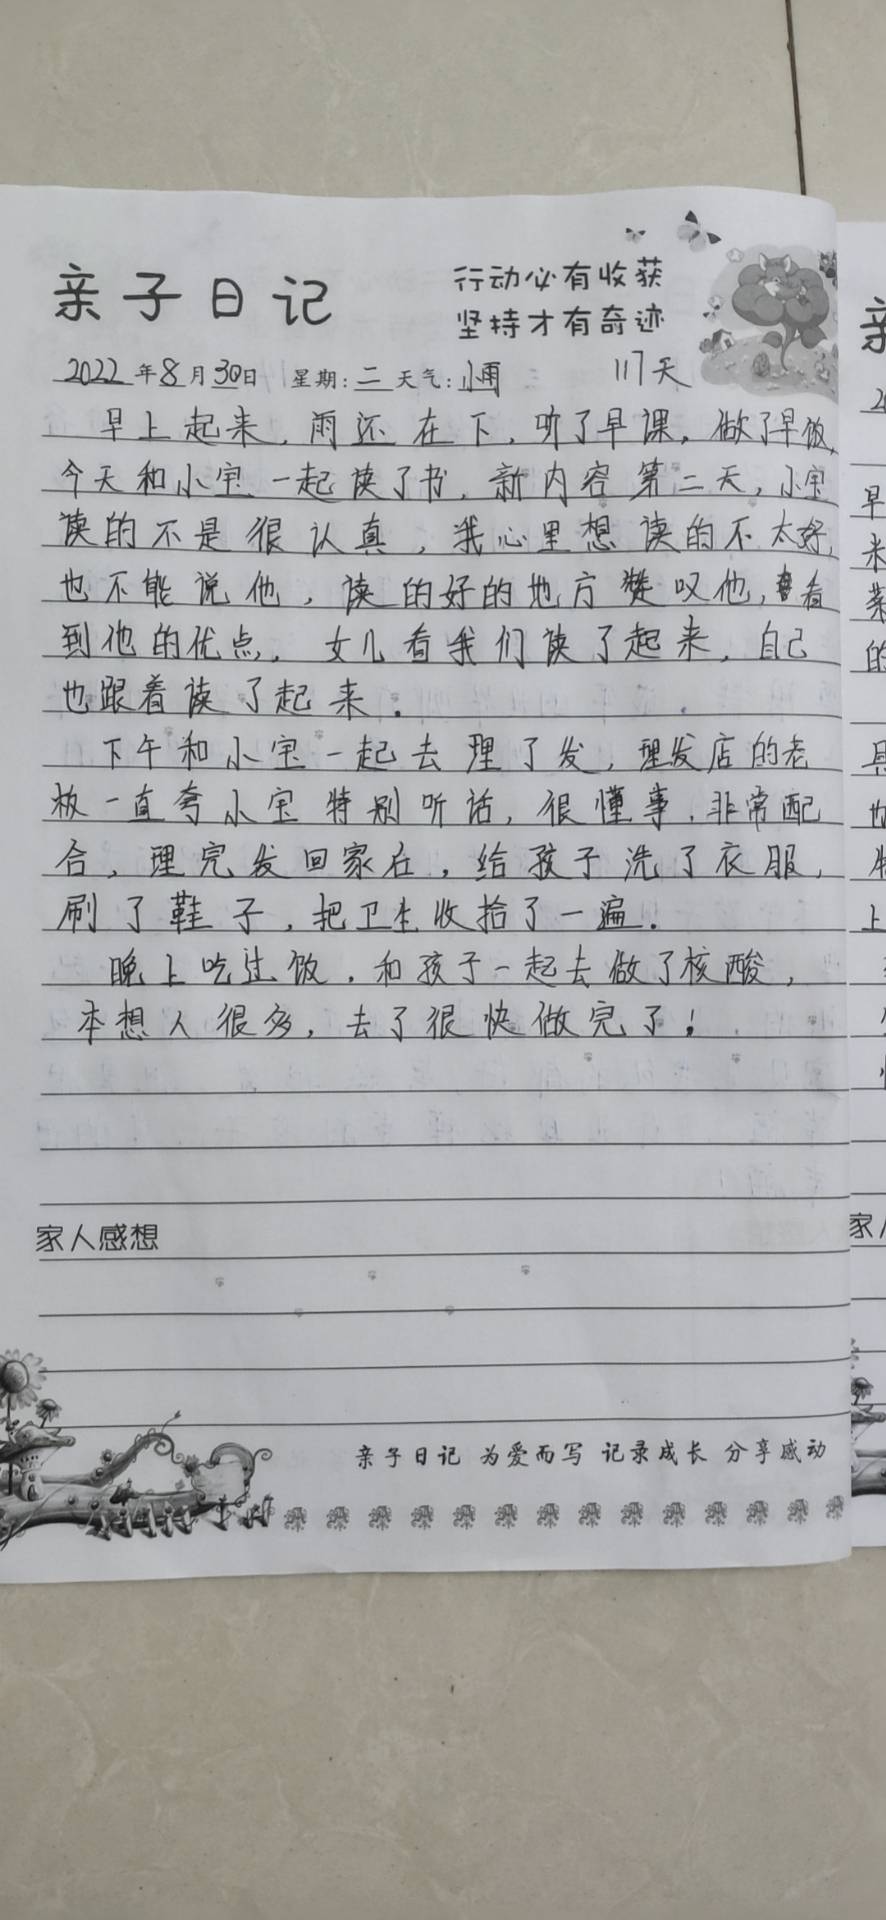 亲子日记
行动必有收获
坚持才有奇迹
2022年8月30日 星期:二 天气:小雨 117天
早上起来,雨还在下,听了早课,做了早饭,
今天和小宝一起读了书,新内容第二天,小宝
读的不是很认真,我心里想读的不太好,
也不能说他,读的好的地方赞叹他,看
到他的优点,女儿看我们读了起来,自己
也跟着读了起来.
下午和小宝一起去理了发,理发店的老
板一直夸小宝特别听话,很懂事,非常配
合,理完发回家在,给孩子洗了衣服,
刷了鞋子,把卫生收拾了一遍.
晚上吃过饭,和孩子一起去做了核酸,
本想人很多,去了很快做完了!
家人感想
亲子日记 为爱而写 记录成长 分享感动